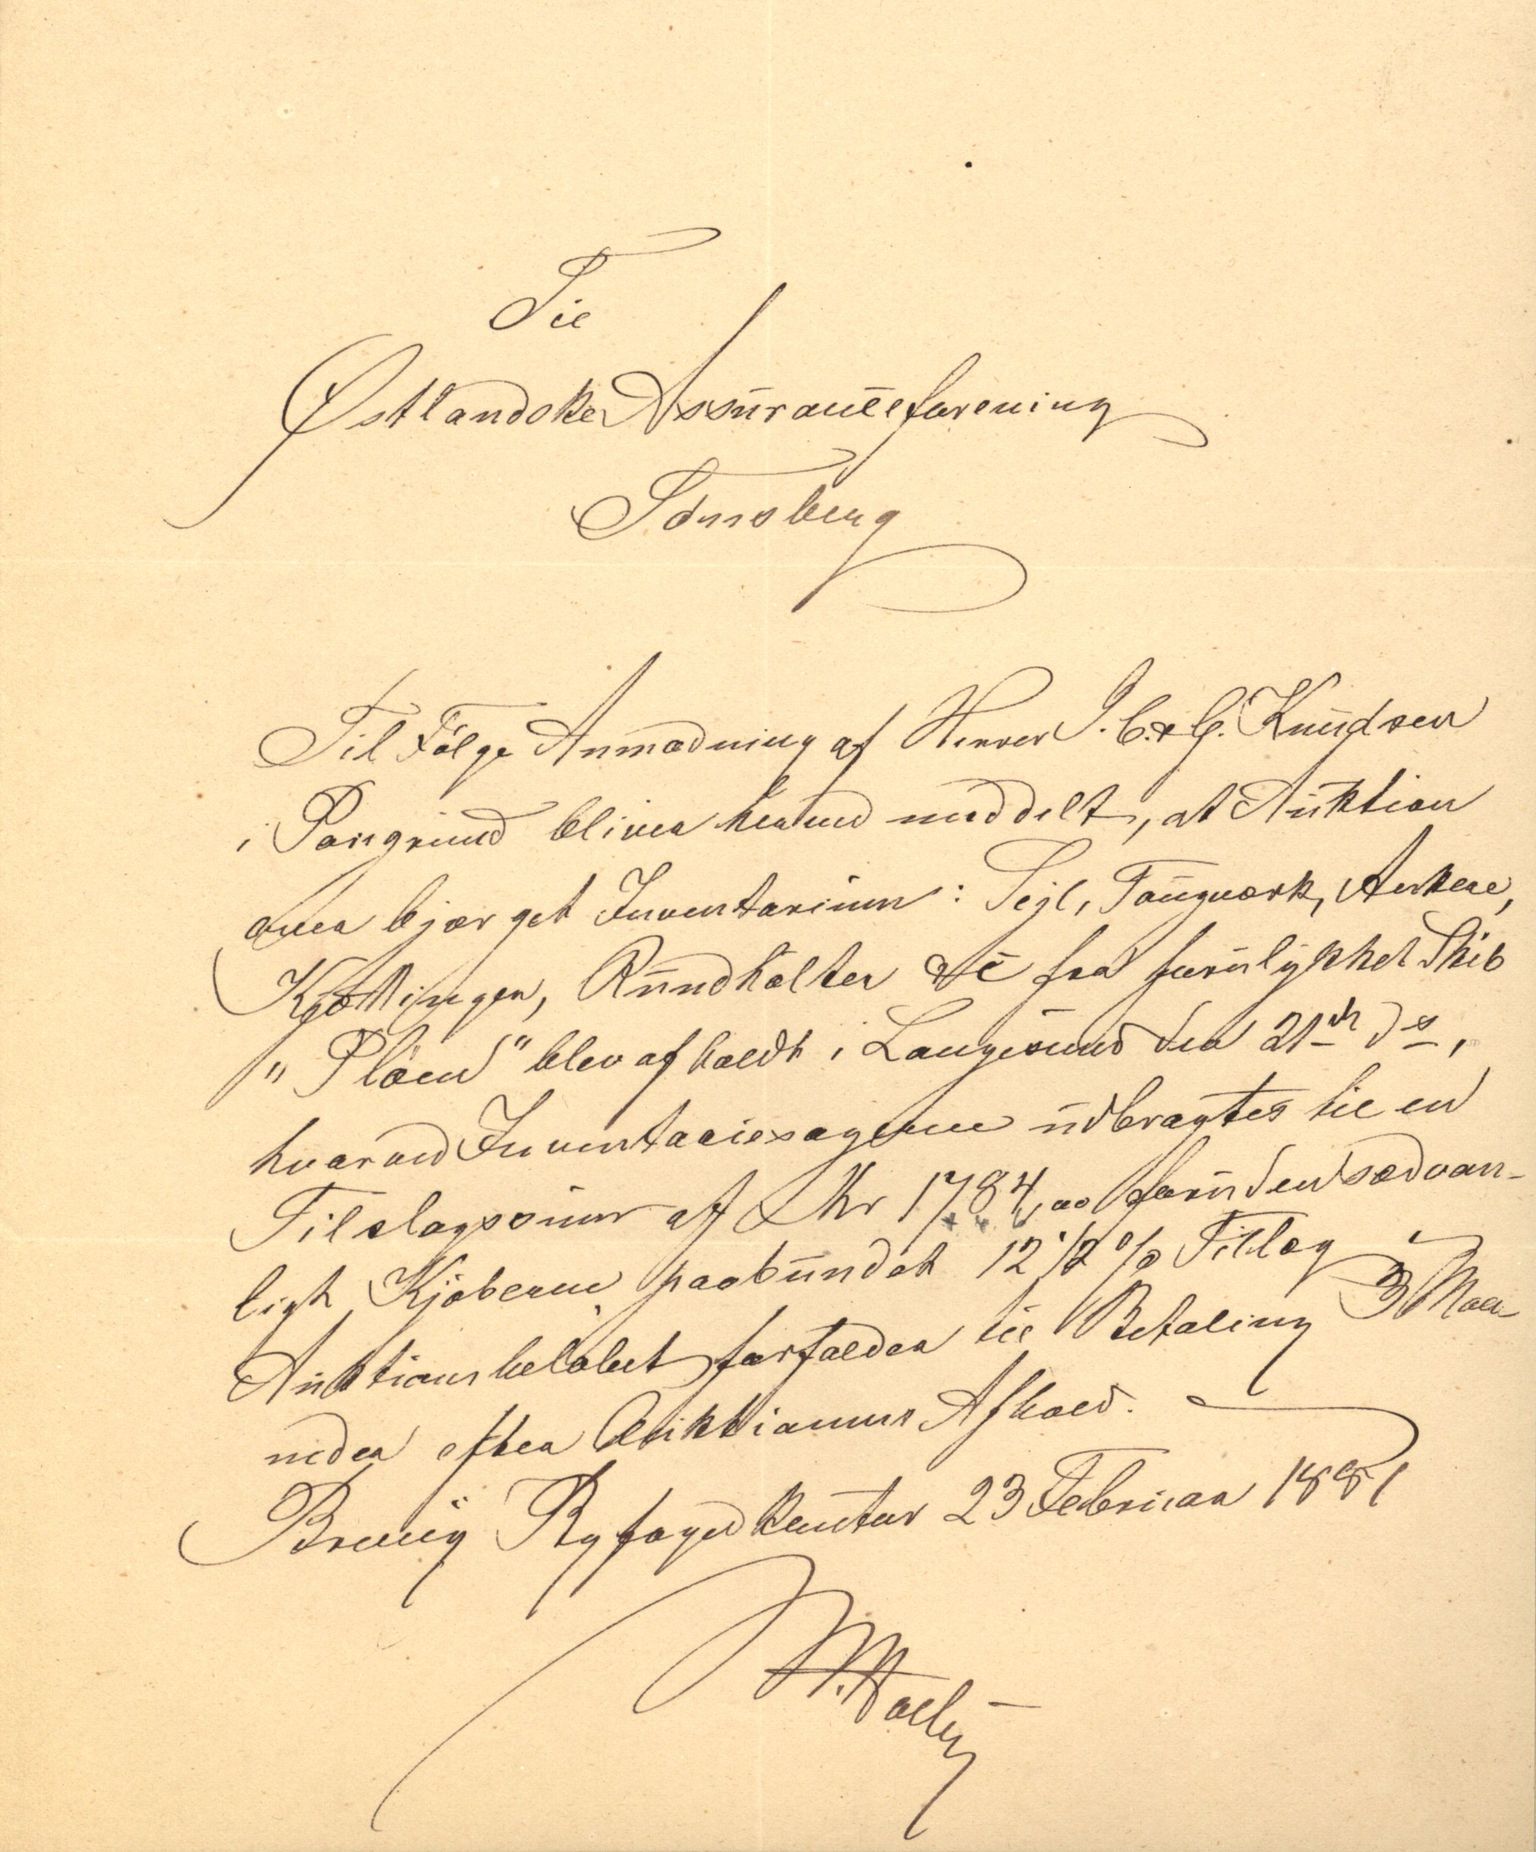 Til
Østlandske Assuranceforening
Tønsberg
Til Følge Anmodning af Herrer J. C. & G. Knudsen
i Porsgrund bliver herved meddelt, at Auktion
over bjærget Inventarium: Sejl, Taugværk, Ankere,
Kjættinger, Rundholter &c fra forulykket Skib
" " blev afholdt i Langesund den 21de ds,
hvorved Inventariesagerne udbragtes til en
Tilslagssum af Kr 1784,00 foruden sædvan-
ligt Kjøberne paabundet 12 1/2 % Tillæg
Auktionsbeløbet forfalder til Betaling 3 Maa-
neder efter Auktionens Afhold.
Brevig Byfogedkontor 23 Februar 1881